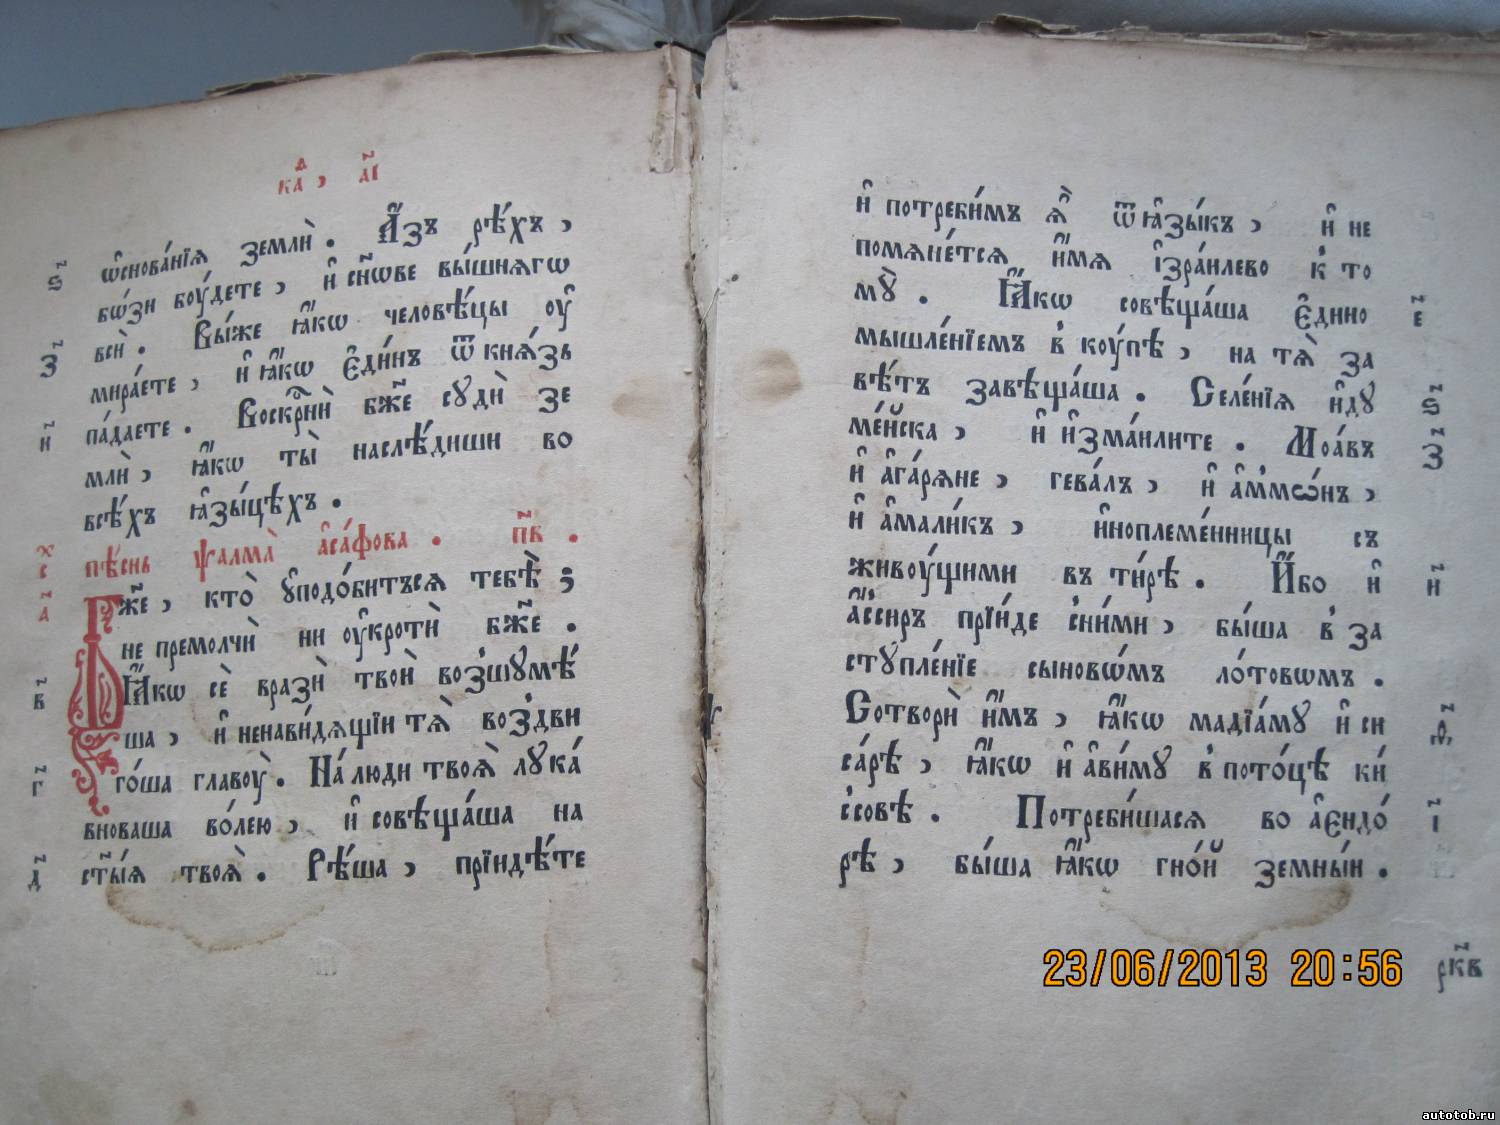 каⷣ, а҃і
ѕ҃ ѡ҆снова́нїѧ землѝ. А҆́зъ рѣ́хъ,
бѡ́зи боу́дете, и҆ сн҃ѡве вы́шнѧгѡ
з҃ всѝ. Вы́же ꙗ҆́кѡ человѣ́цы оу҆
мира́ете, и҆ ꙗ҆́кѡ є҆ди́нъ ѿ кнѧ́зь
и҃ па́даете. Воскр҇нѝ бж҃е сꙋдѝ зе
млѝ, ꙗ҆́кѡ ты̀ наслѣ́диши во
всѣ́хъ ꙗ҆зы́цѣхъ.
хс пѣ́снь ѱалма̀ а҆са́фова. п҃в.
а҃ Бж҃е, кто̀ ᲂуподо́битъсѧ тебѣ̀;
не премолчѝ ни оу҆кротѝ бж҃е.
в҃ Ꙗ҆́кѡ сѐ вразѝ твоѝ возшꙋмѣ́
ша, и҆ ненави́дѧщїи тѧ̀ воздви
г҃ го́ша главоу̀. На́ люди твоѧ̀ лꙋка́
вноваша во́лею, и҆ совѣща́ша на
д҃ ст҃ы́ѧ твоѧ̀. Рѣ́ша, прїидѣ́те
и҆ потреби́мъ ѧ҆̀ ѿ ꙗ҆зы́къ, и҆ не
помѧне́тсѧ и҆́мѧ і҆зра́илево к то
мꙋ̀. Ꙗ҆́кѡ совѣща́ша є҆дино е҃
мышле́нїемъ в коу́пѣ, на тѧ̀ за
вѣ́тъ завѣща́ша. Селе́нїѧ и҆дꙋ ѕ҃
ме́йска, и҆ и҆зма́илите. Моа́въ з҃
и҆ а҆га́рѧне, гева́лъ, и҆ а҆ммѡ́нъ,
и҆ а҆мали́къ, и҆ноплеме́нницы съ
живоу́щими въ ти́рѣ. И҆́бо и҆ и҃
а҆́ссиръ прїи́де сни́ми, бы́ша в за
стꙋпле́нїе сыновѡ́мъ ло́товѡмъ.
Сотворѝ и҆̀мъ, ꙗ҆́кѡ мадїа́мꙋ и҆ си ѳ҃
са́рѣ, ꙗ҆́кѡ и҆ а҆ви́мꙋ в пото́цѣ ки́
ссовѣ. Потреби́шасѧ во а҆єндо́ і҃
рѣ, бы́ша ꙗ҆́кѡ гно́й земны́и.
рк҃в
23/06/2013 20:56
autotob.ru